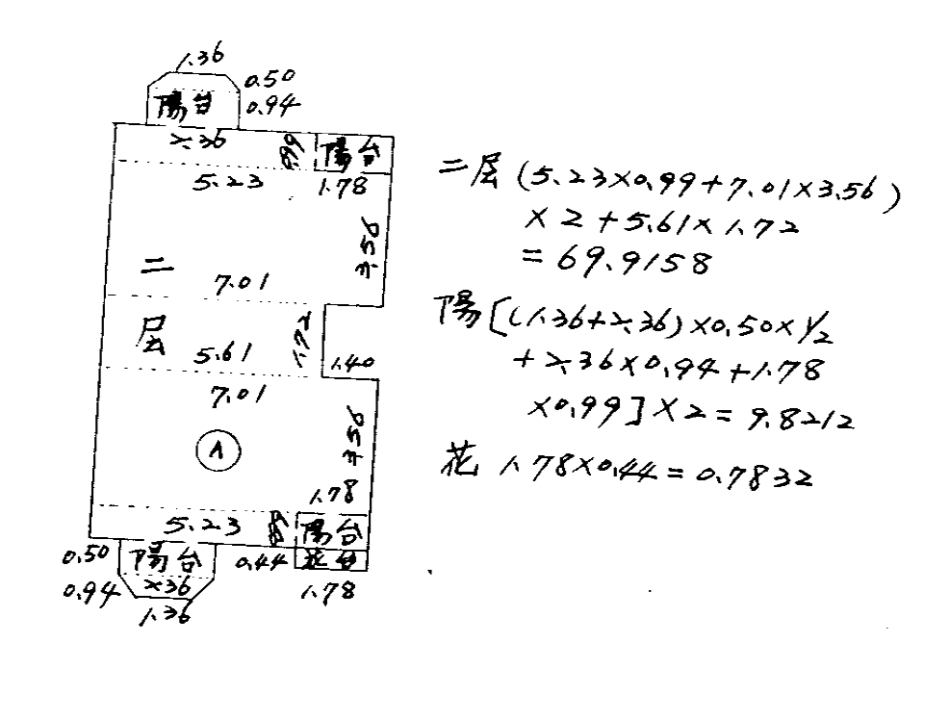 1.36
0.50
陽台 0.94
2.36 0.99 陽台
5.23 1.78
3.56
二
7.01
层 5.61 1.72 1.40
7.01
3.56
A
1.78
5.23 0.99 陽台
0.50 陽台 0.44 花台
0.94 2.36 1.78
1.36
二层(5.23×0.99+7.01×3.56)
×2+5.61×1.72
=69.9158
陽[(1.36+2.36)×0.50×1/2
+2.36×0.94+1.78
×0.99]×2=9.8212
花 1.78×0.44=0.7832